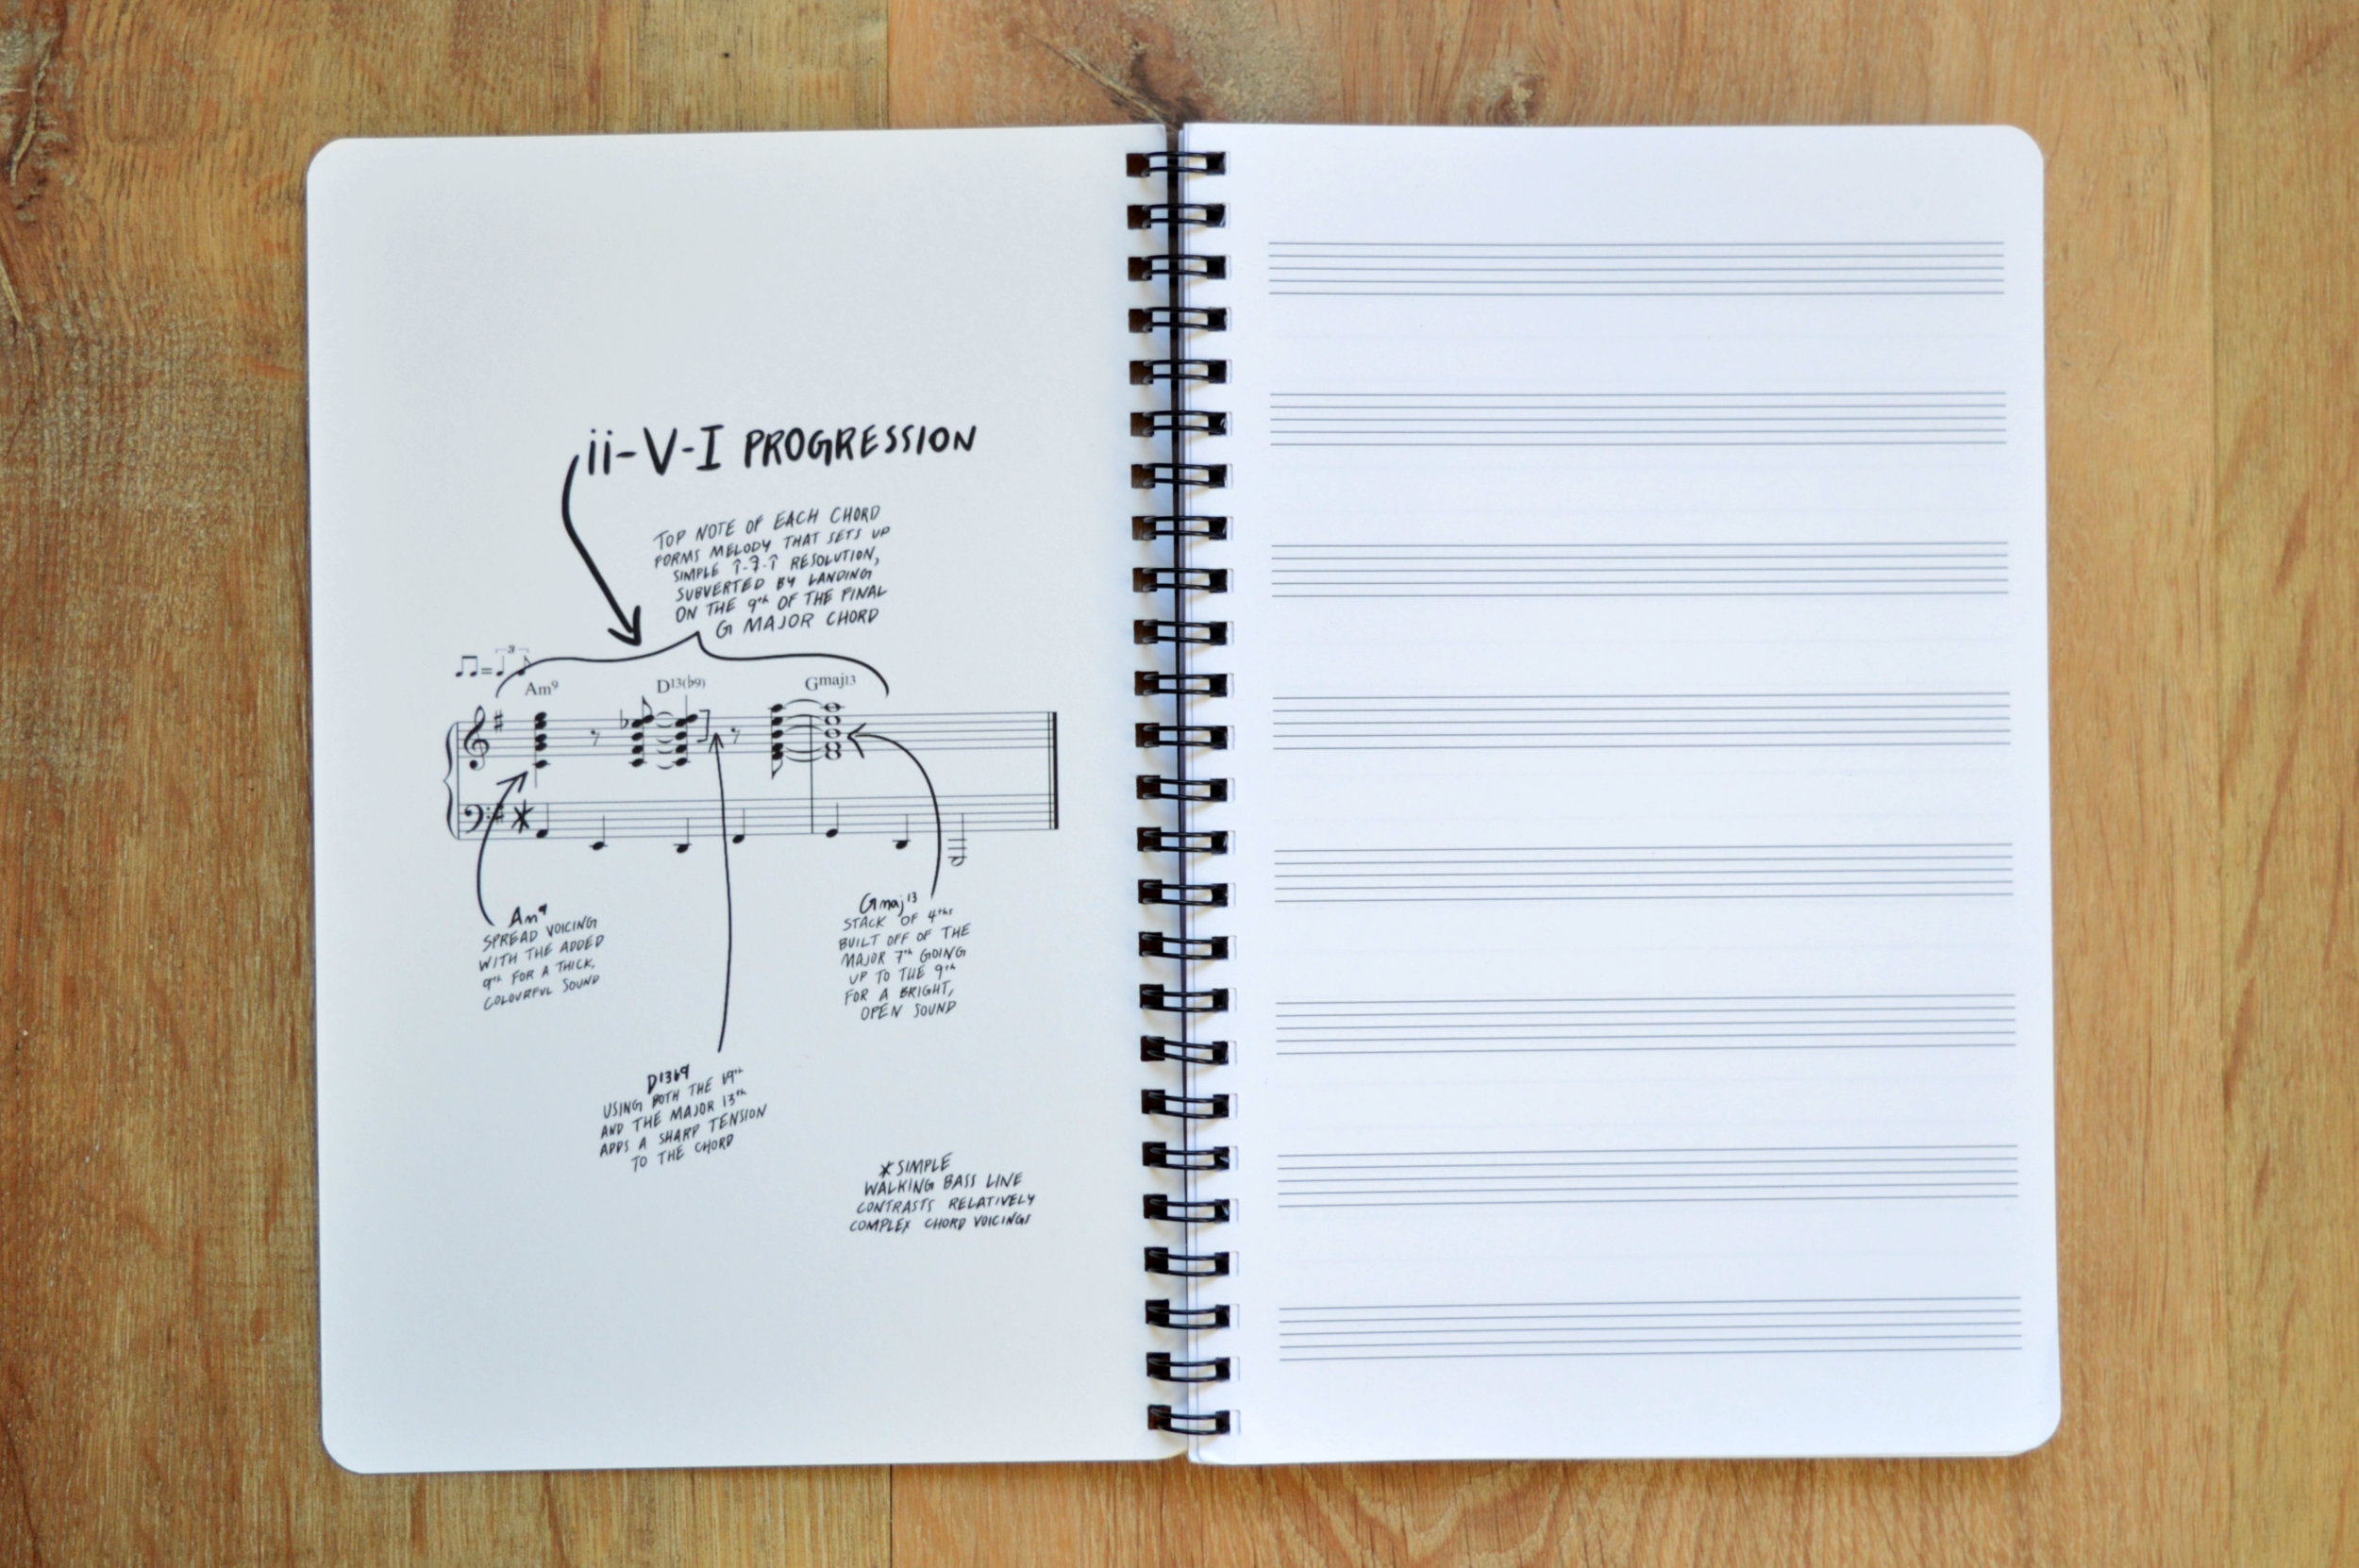 ii-V-I PROGRESSION
TOP NOTE OF EACH CHORD
FORMS MELODY THAT SETS UP
SIMPLE 1̂-7̂-1̂ RESOLUTION,
SUBVERTED BY LANDING
ON THE 9th OF THE FINAL
G MAJOR CHORD
3
Am9 D13(♭9) Gmaj13
Am9
SPREAD VOICING
WITH THE ADDED
9th FOR A THICK,
COLOURFUL SOUND
Gmaj13
STACK OF 4ths
BUILT OFF OF THE
MAJOR 7th GOING
UP TO THE 9th
FOR A BRIGHT,
OPEN SOUND
D13♭9
USING BOTH THE ♭9th
AND THE MAJOR 13th
ADDS A SHARP TENSION
TO THE CHORD
*SIMPLE
WALKING BASS LINE
CONTRASTS RELATIVELY
COMPLEX CHORD VOICINGS